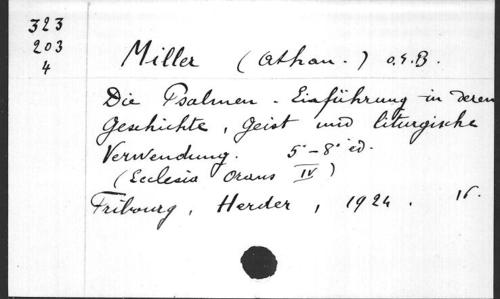 323
203
4
Miller (Athan.) O.S.B.
Die Psalmen - Einführung in deren
Geschichte, Geist und liturgische
Verwendung. 5°-8° ed.
(Ecclesia Orans IV)
Fribourg, Herder, 1924.